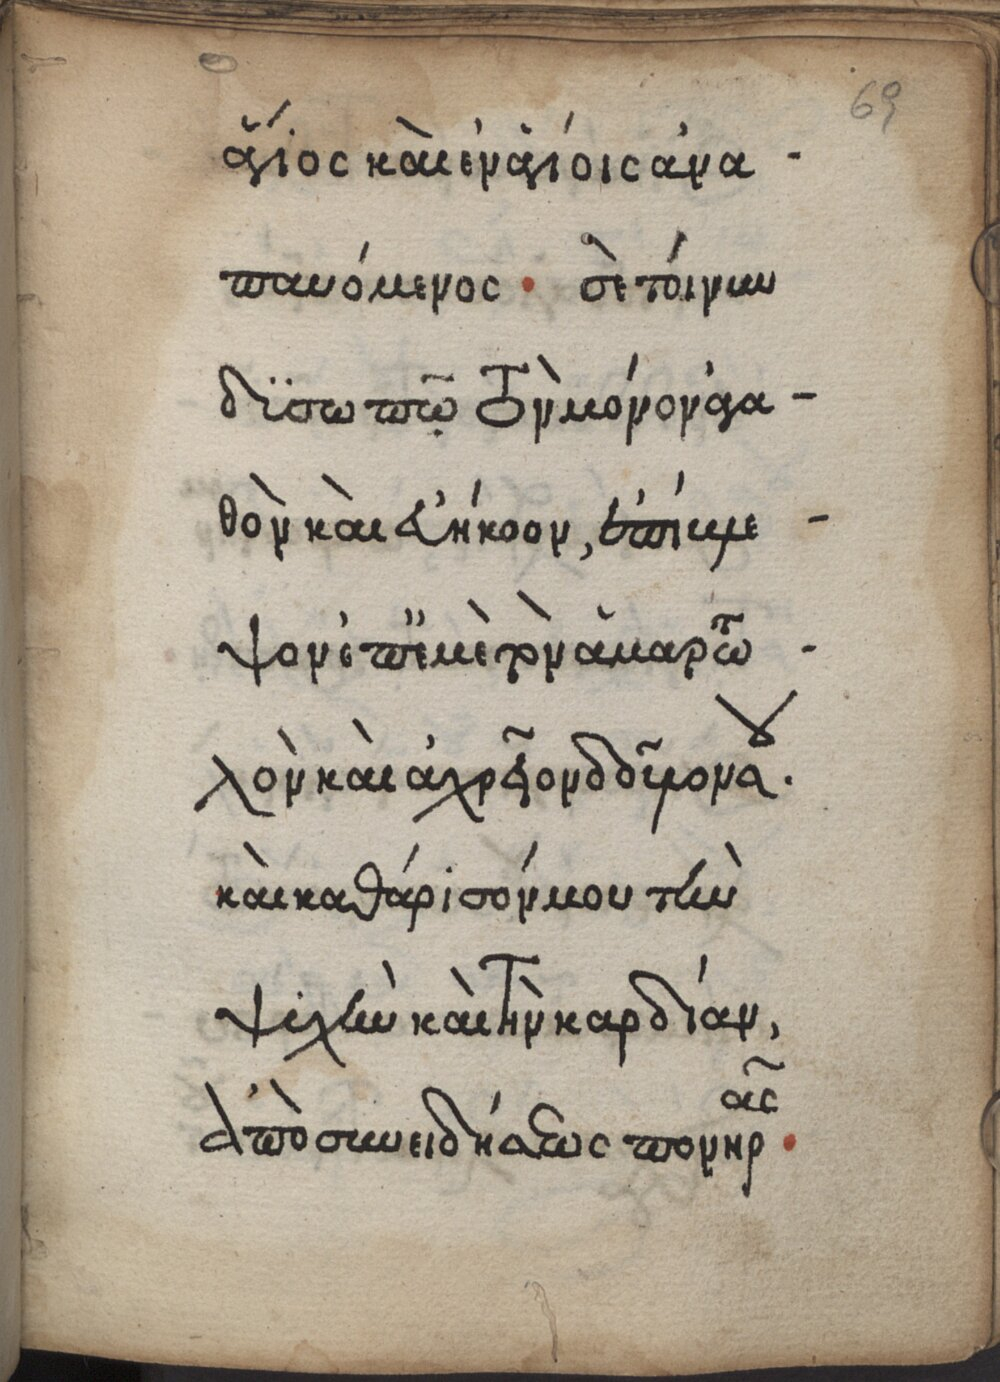 69
ἅγιος καὶ ἐν ἁγίοις ἀνα -
παυόμενος · σὲ τόινυν
δϊσωπῶ τὸν μόνον ἀγα -
θὸν καὶ ἐυήκοον, ἐπίβλε -
ψον ἐπ' ἐμὲ τὸν ἁμαρτω -
λὸν καὶ ἀχρεῖον δοῦλον σου .
καὶ καθάρισόν μου τὴν
ψυχὴν καὶ τὴν καρδίαν,
ἀπὸ συνειδήσεως πονηρᾶς ·